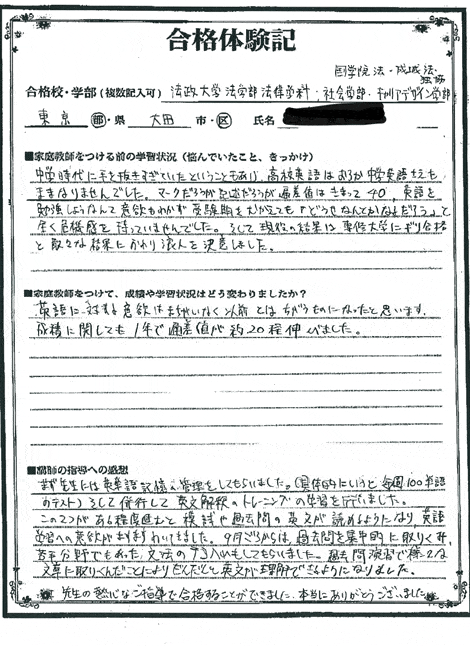 合格体験記
国学院 法・成城 法・
独協
合格校・学部（複数記入可） 法政大学 法学部 法律学科・社会学部・キャリアデザイン学部
東京 都・県 大田 市・区 氏名
■家庭教師をつける前の学習状況（悩んでいたこと、きっかけ）
中学時代に手を抜きすぎていたということもあり、高校英語はおろか中学英語さえも
ままなりませんでした。マークだろうが記述だろうが偏差値はきまって40、英語を
勉強しようなんて意欲もわかず受験期をむかえても「どうせなんとかなるだろう」と
全く危機感を持っていませんでした。そして現役の結果は専修大学にギリ合格
と散々な結果におわり浪人を決意しました。
■家庭教師をつけて、成績や学習状況はどう変わりましたか？
英語に対する意欲はまちがいなく以前とはちがうものになったと思います。
成績に関しても1年で偏差値が約20程伸びました。
■講師の指導への感想
まず先生には英単語記憶の管理をしてもらいました。(具体的にいうと毎週100単語
のテスト)そして併行して英文解釈のトレーニングの学習を行いました。
この2つがある程度進むと模試や過去問の英文が読めるようになり、英語
学習への意欲がますますわいてきました。9月ごろからは、過去問を集中的に取りくみ、
苦手分野でもあった文法の穴うめもしてもらいました。過去問演習で様々な
文章に取りくんだことによりだんだんと英文が理解できるようになりました。
先生の熱心なご指導で合格することができました。本当にありがとうございました。